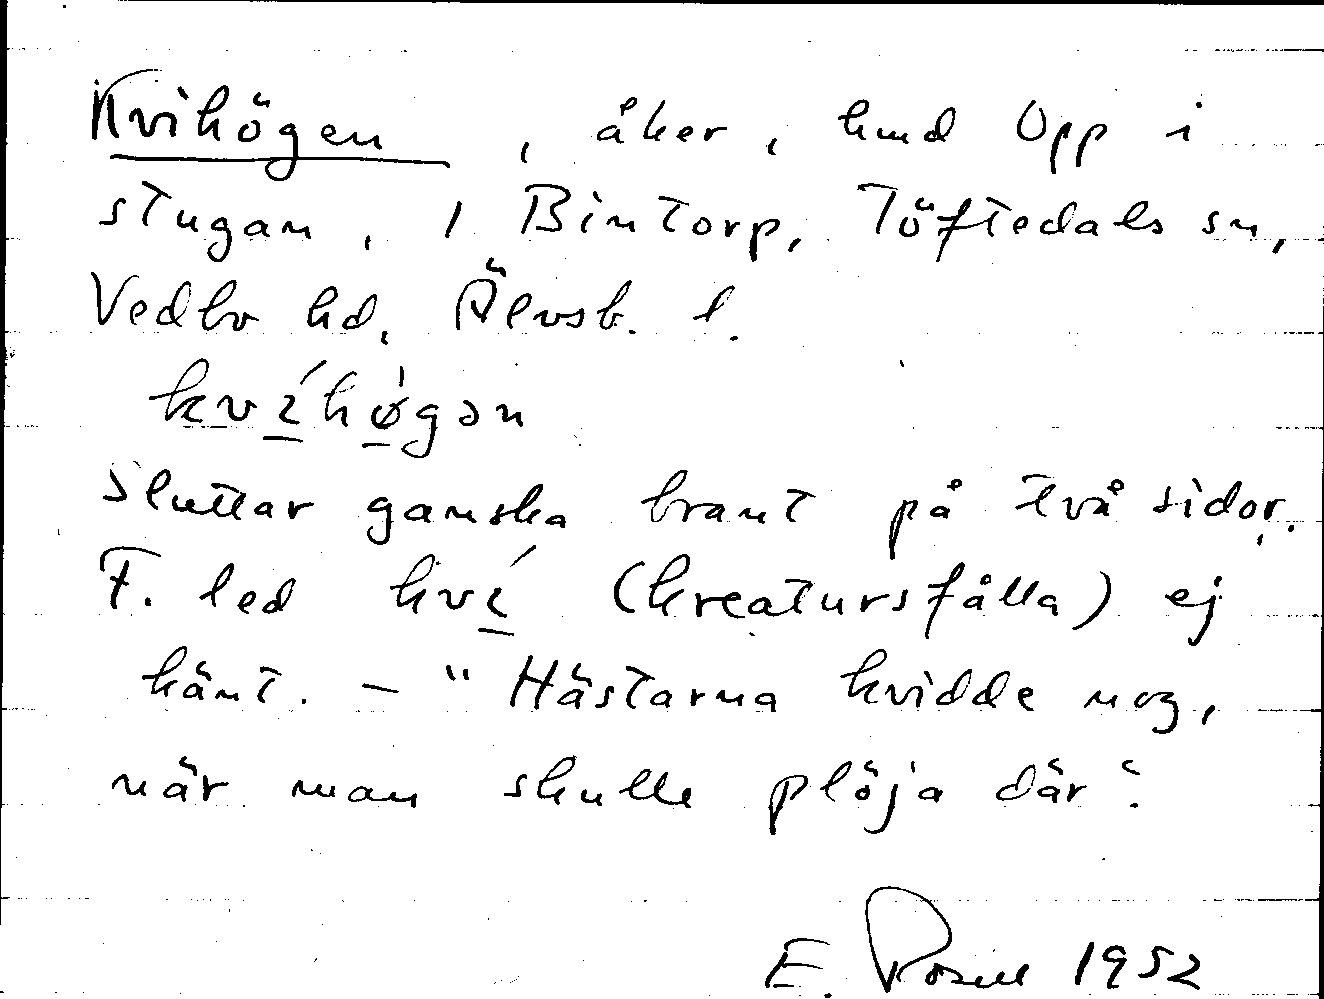 Kvihögen, åker, hmd Opp i
stugan, 1 Bintorp, Töftedals sn,
Vedbo hd, Älvsb. l.
kvíhø̀gən
Sluttar ganska brant på två sidor.
F. led kví (kreatursfålla) ej
känt. – "Hästarna kvidde nog,
när man skulle plöja där".
E. Rosell 1952